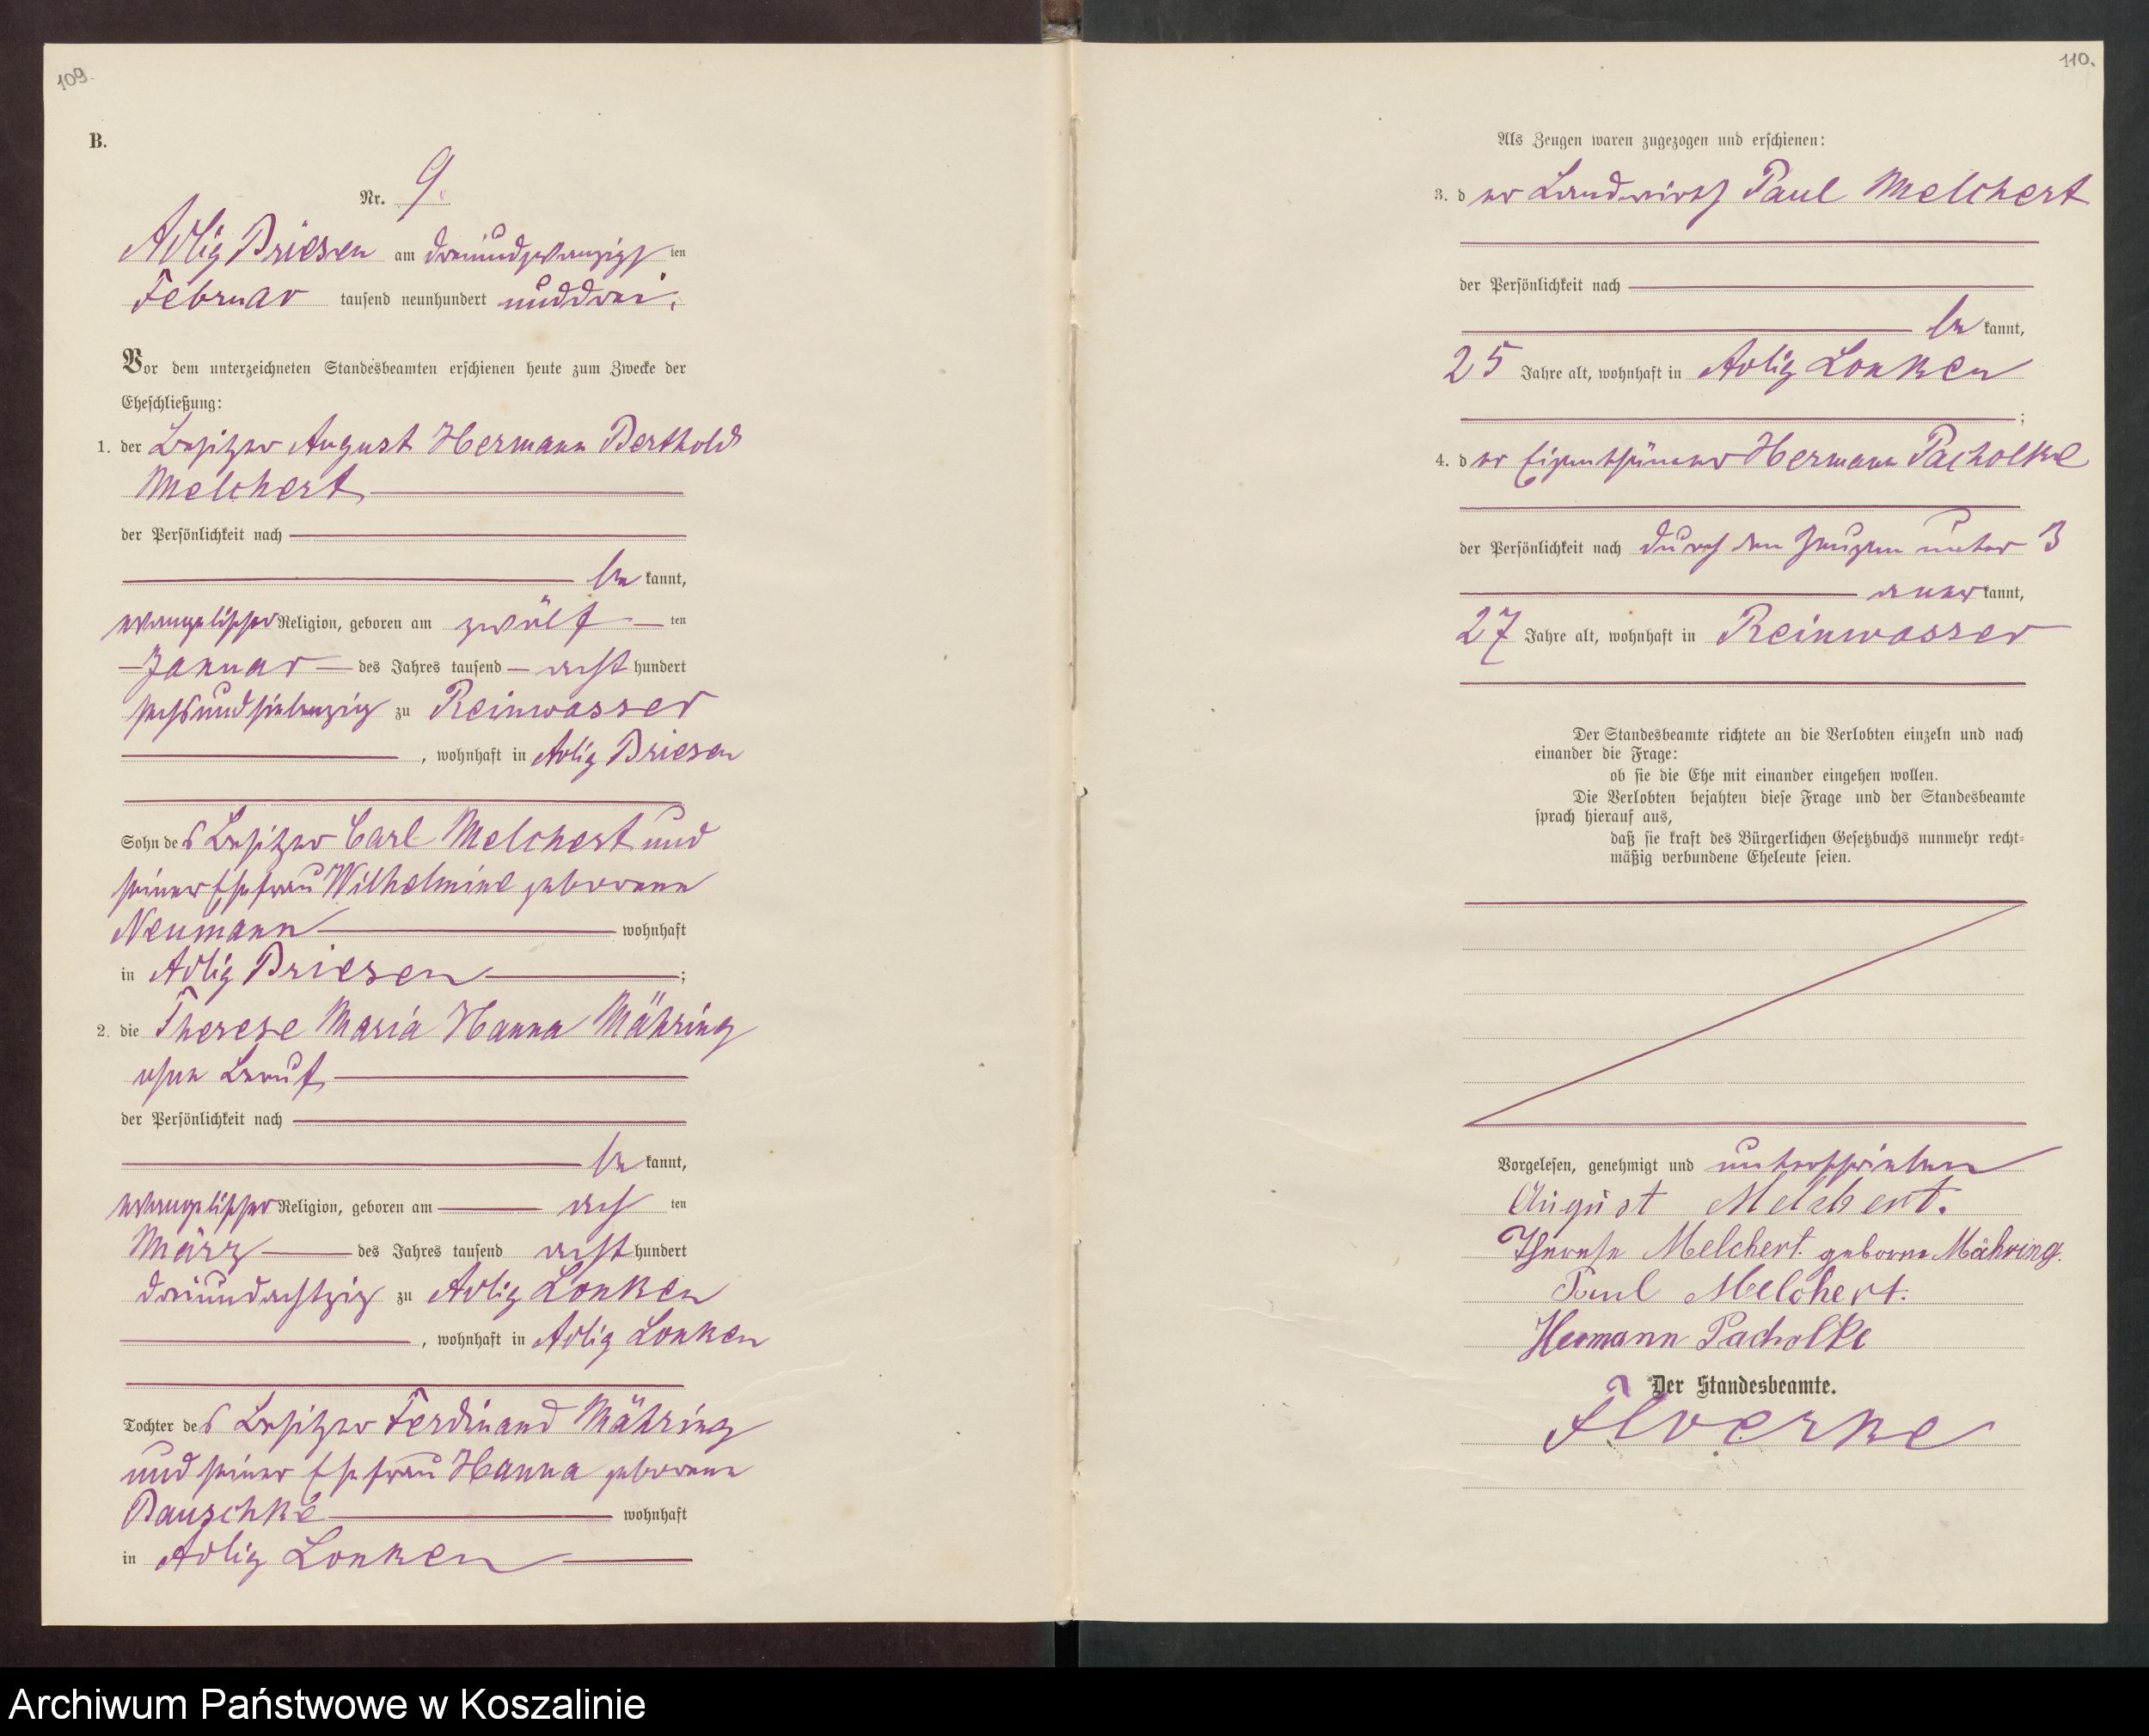 109.
B.
Nr. 9
Adlig Briesen am dreiundzwanzigs ten
Februar tausend neunhundert unddrei.
Vor dem unterzeichneten Standesbeamten erschienen heute zum Zwecke der
Eheschließung:
1. der Besitzer August Hermann Berthold
Melchert
der Persönlichkeit nach
be kannt,
evangelischer Religion, geboren am zwölf ten
Januar des Jahres tausend acht hundert
sechsundsiebenzig zu Reinwasser
, wohnhaft in Adlig Briesen
Sohn des Besitzer Carl Melchert und
seiner Ehefrau Wilhelmine geborene
Neumann wohnhaft
in Adlig Briesen ;
2. die Therese Maria Hanna Mähring
ohne Beruf
der Persönlichkeit nach
be kannt,
evangelischer Religion, geboren am ach ten
März des Jahres tausend acht hundert
dreiundachtzig zu Adlig Lonken
, wohnhaft in Adlig Lonken
Tochter des Besitzer Ferdinand Mähring
und seiner Ehefrau Hanna geborene
Bauschke wohnhaft
in Adlig Lonken
110.
Als Zeugen waren zugezogen und erschienen:
3. d er Landwirth Paul Melchert
der Persönlichkeit nach
be kannt,
25 Jahre alt, wohnhaft in Adlig Lonken
;
4. d er Eigenthümer Hermann Pacholke
der Persönlichkeit nach durch den Zeugen unter 3
aner kannt,
27 Jahre alt, wohnhaft in Reinwasser
Der Standesbeamte richtete an die Verlobten einzeln und nach
einander die Frage:
ob sie die Ehe mit einander eingehen wollen.
Die Verlobten bejahten diese Frage und der Standesbeamte
sprach hierauf aus,
daß sie kraft des Bürgerlichen Gesetzbuchs nunmehr recht=
mäßig verbundene Eheleute seien.
Vorgelesen, genehmigt und unterschrieben
August Melchert.
Therese Melchert geborne Mähring.
Paul Melchert.
Hermann Pacholke
Der Standesbeamte.
Floerke
Archiwum Państwowe w Koszalinie